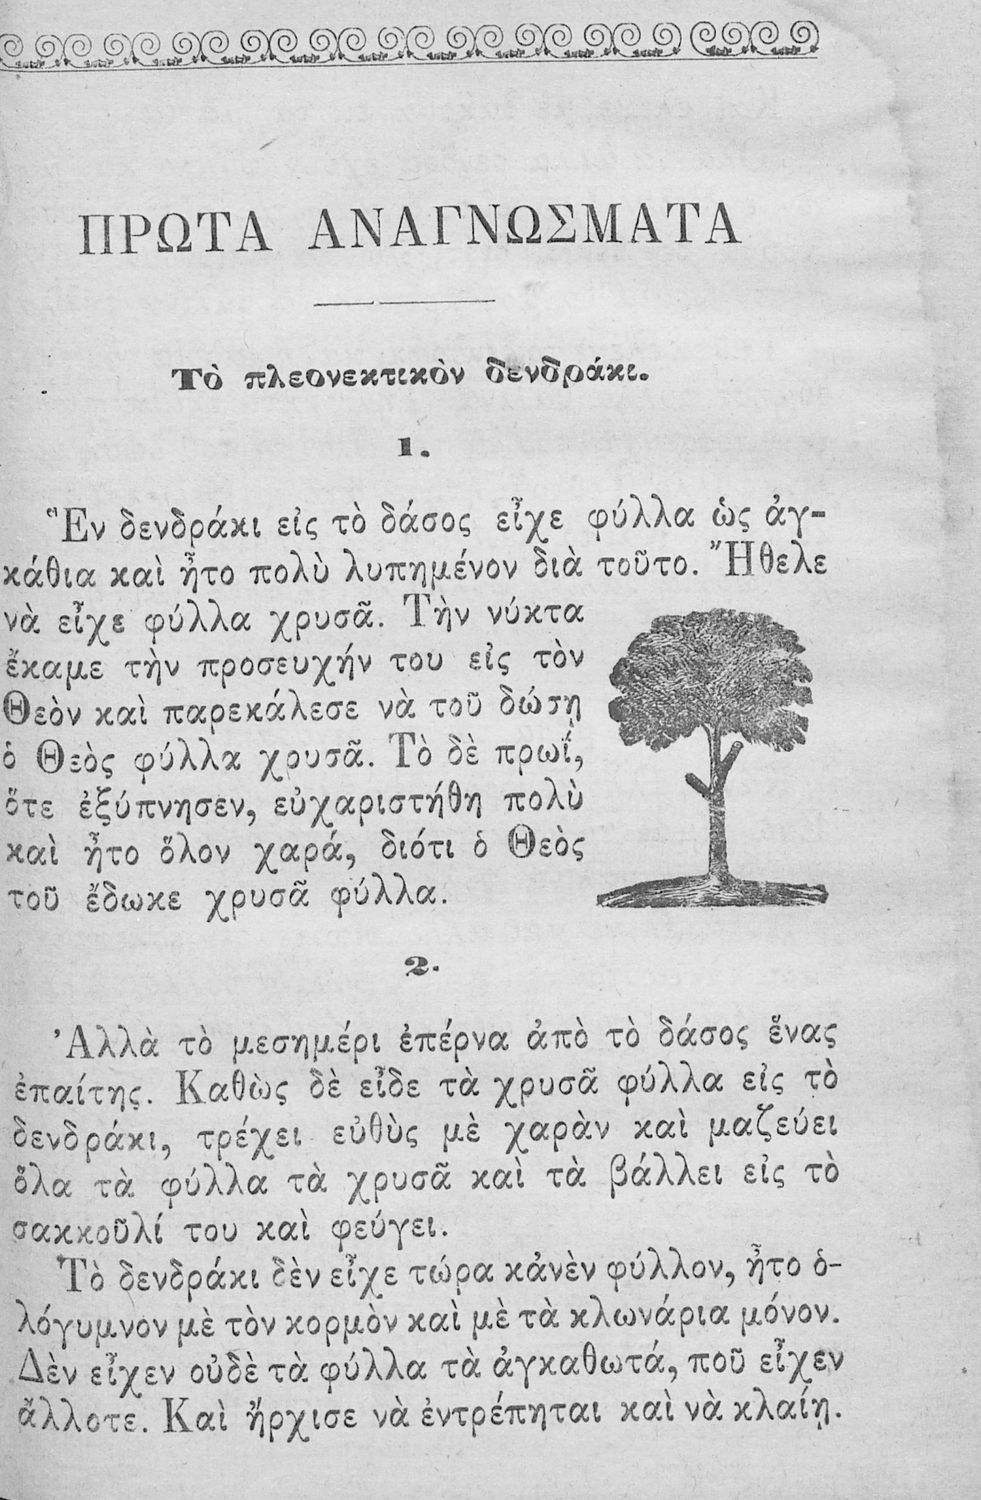 ΠΡΩΤΑ ΑΝΑΓΝΩΣΜΑΤΑ
Τὸ πλεονεκτικὸν δενδράκι.
1.
Ἓν δενδράκι εἰς τὸ δάσος εἶχε φύλλα ὡς ἀγ-
κάθια καὶ ἦτο πολὺ λυπημένον διὰ τοῦτο. Ἤθελε
νὰ εἶχε φύλλα χρυσᾶ. Τὴν νύκτα
ἔκαμε τὴν προσευχήν του εἰς τὸν
Θεὸν καὶ παρεκάλεσε νὰ τοῦ δώσῃ
ὁ Θεὸς φύλλα χρυσᾶ. Τὸ δὲ πρωΐ,
ὅτε ἐξύπνησεν, εὐχαριστήθη πολὺ
καὶ ἦτο ὅλον χαρά, διότι ὁ Θεὸς
τοῦ ἔδωκε χρυσᾶ φύλλα.
2.
Ἀλλὰ τὸ μεσημέρι ἐπέρνα ἀπὸ τὸ δάσος ἕνας
ἐπαίτης. Καθὼς δὲ εἶδε τὰ χρυσᾶ φύλλα εἰς τὸ
δενδράκι, τρέχει εὐθὺς μὲ χαρὰν καὶ μαζεύει
ὅλα τὰ φύλλα τὰ χρυσᾶ καὶ τὰ βάλλει εἰς τὸ
σακκοῦλί του καὶ φεύγει.
Τὸ δενδράκι δὲν εἶχε τώρα κἀνὲν φύλλον, ἦτο ὁ-
λόγυμνον μὲ τὸν κορμὸν καὶ μὲ τὰ κλωνάρια μόνον.
Δὲν εἶχεν οὐδὲ τὰ φύλλα τὰ ἀγκαθωτά, ποῦ εἶχεν
ἄλλοτε. Καὶ ἤρχισε νὰ ἐντρέπηται καὶ νὰ κλαίῃ.